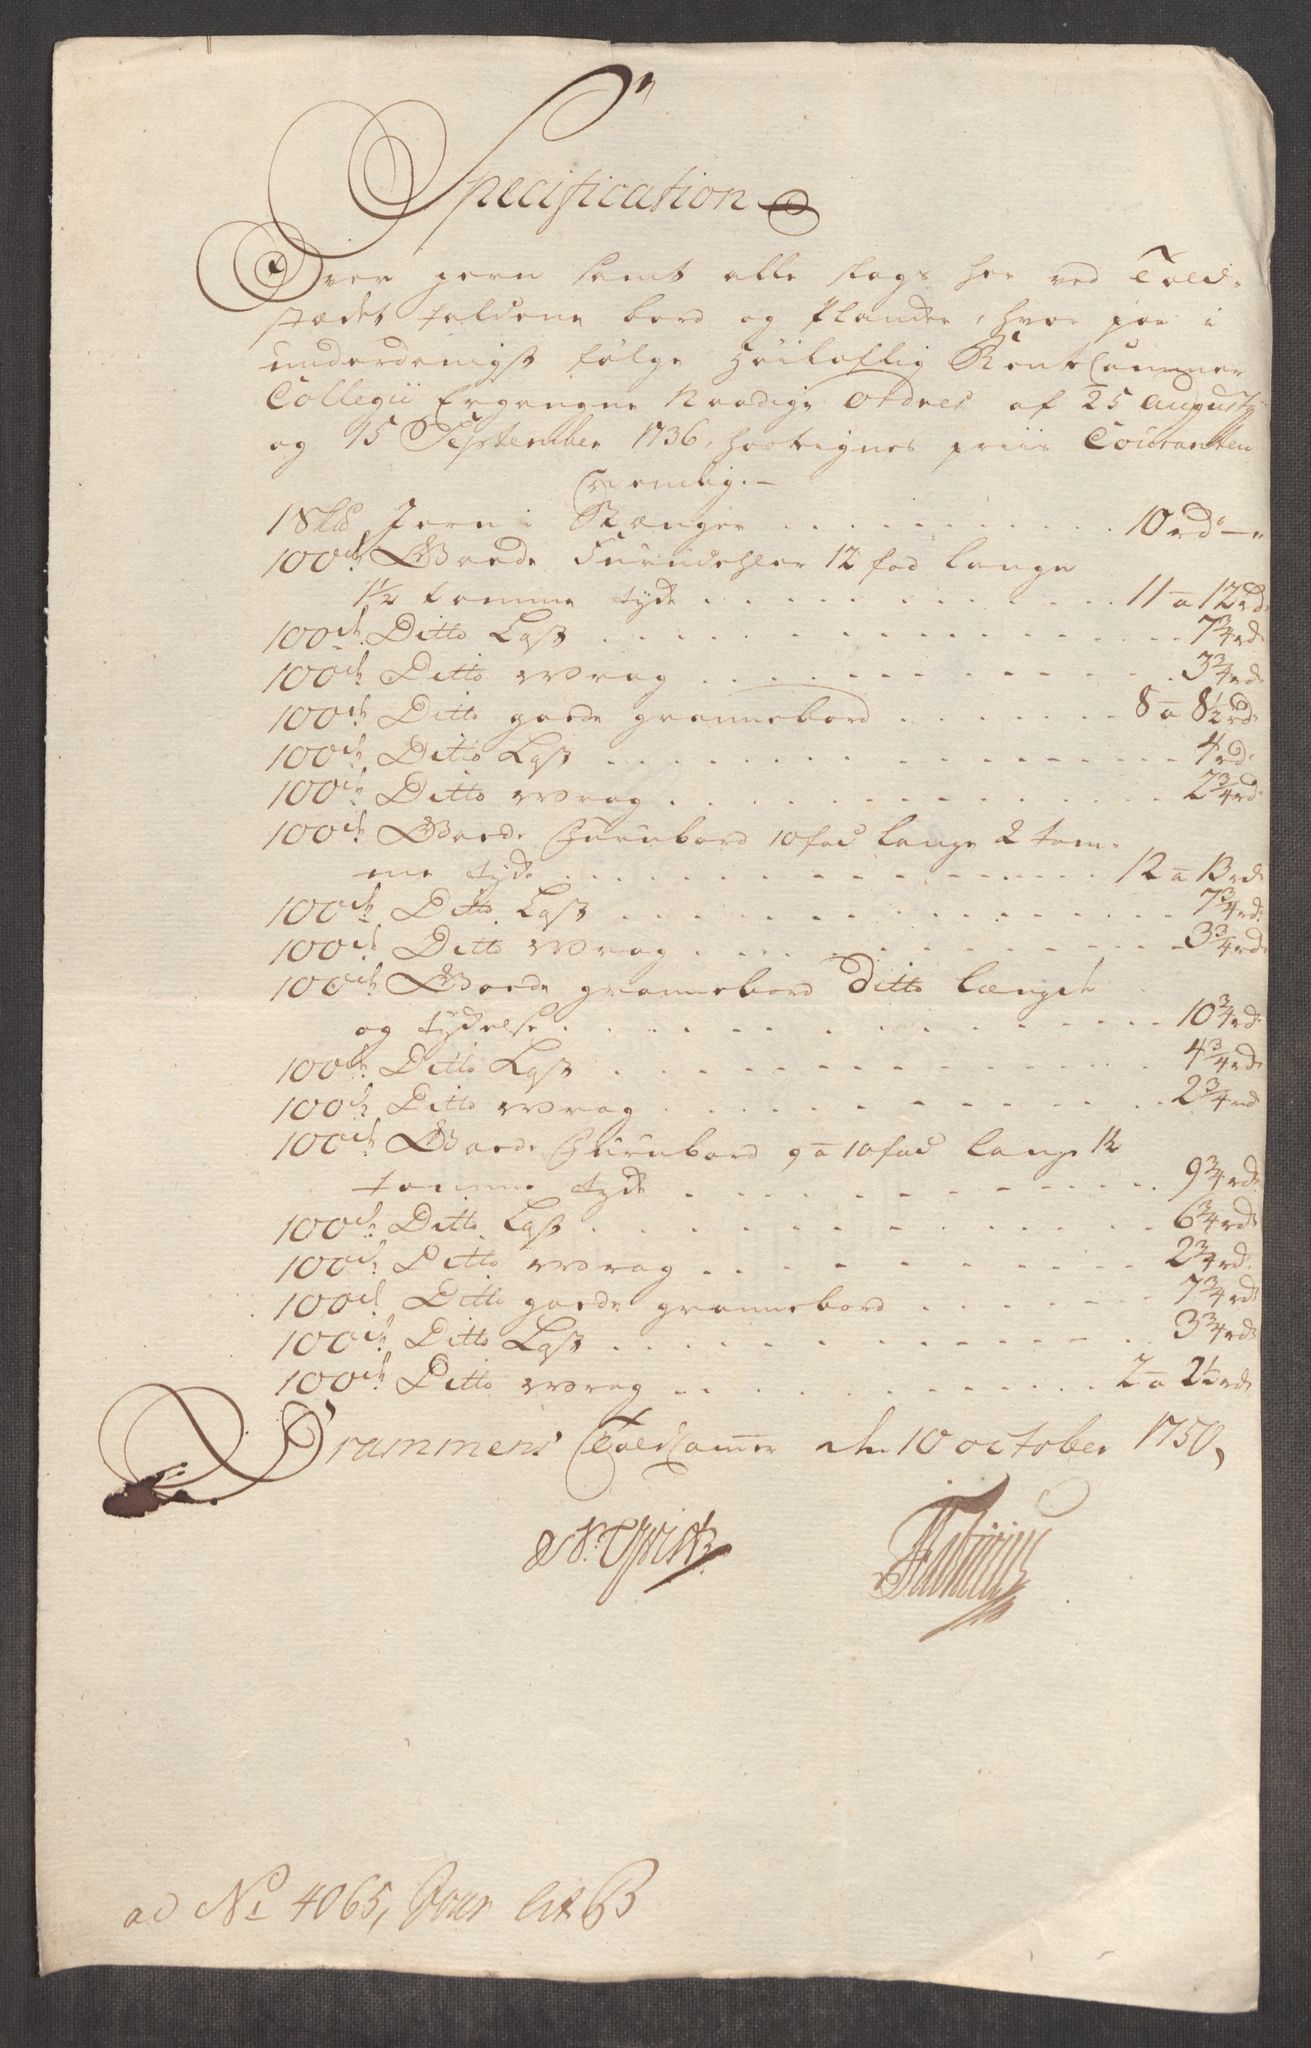 Specification
Over jern samt alle slags her ved Told-
stædet faldene bord og Plancker, hvor paa i
underdanigst følge Høiloflig Rente Cammer
Collegii Ergangne Naadige Ordres af 25 augusty
og 15 September 1736, hostegnes priis Couranten
Nemlig.-
1 Sk℔ Jern i Stænger . . . 10 rd -"
100de Goede Furudehler 12 fod lange
1½ tomme tyke . . . 11 a 12 rd
100de Ditto Last . . . 7¾ rd
100de Ditto Wrag . . . 3¾ rd
100de Ditto goede grannebord . . . 8 a 8½ rd
100de Ditto Last . . . 4 rd
100de Ditto Wrag . . . 2¾ rd
100de Goede Furubord 10 fod lange 2 tom-
me tyke . . . 12 a 13 rd
100de Ditto Last . . . 7¾ rd
100de Ditto Wrag . . . 3¾ rd
100de Goede grannebord Ditto længde
og tykelse . . . 10¾ rd
100de Ditto Last . . . 4¾ rd
100de Ditto Wrag . . . 2¾ rd
100de Goede Furubord 9 a 10 fod lange 1½
tomme tyke . . . 9¾ rd
100de Ditto Last . . . 6¾ rd
100de Ditto Wrag . . . 2¾ rd
100de Ditto goede grannebord . . . 7¾ rd
100de Ditto Last . . . 3¾ rd
100de Ditto Wrag . . . 2 a 2½ rd
Drammens Told Camer den 10 october 1750,
Fabricius
ad No 4065, Jour lit B